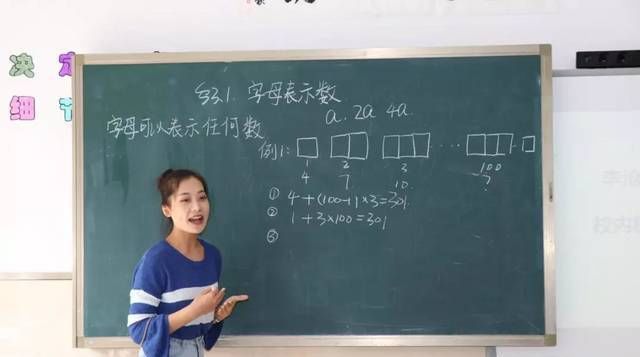 决 定
细 节
§3.1. 字母表示数
a. 2a 4a.
字母可以表示任何数.
例1:
1 2 3 100
4 7 10 ?
① 4+(100-1)×3=301.
② 1+3×100=301
③
校内